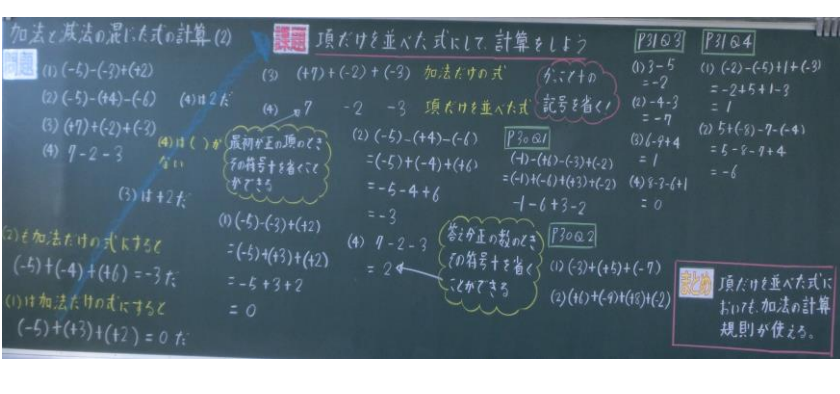 加法と減法の混じった式の計算(2)
問題
(1) (-5)-(-3)+(+2)
(2) (-5)-(+4)-(-6)
(3) (+7)+(-2)+(-3)
(4) 7-2-3
(4)は2だ
(4)は( )が
ない
(3)は+2だ
(2)も加法だけの式にすると
(-5)+(-4)+(+6)=-3だ
(1)は加法だけの式にすると
(-5)+(+3)+(+2)=0だ
課題
項だけを並べた式にして、計算をしよう
(3) (+7)+(-2)+(-3) 加法だけの式
(4) 7 -2 -3 項だけを並べた式
かっこと+の
記号を省く!
最初が正の項のとき
その符号+を省くこと
ができる
(1) (-5)-(-3)+(+2)
=(-5)+(+3)+(+2)
=-5+3+2
=0
(2) (-5)-(+4)-(-6)
=(-5)+(-4)+(+6)
=-5-4+6
=-3
(4) 7-2-3
=2
答えが正の数のとき
その符号+を省く
ことができる
P30Q1
(-1)-(+6)-(-3)+(-2)
=(-1)+(-6)+(+3)+(-2)
-1-6+3-2
P30Q2
(1) (-3)+(+5)+(-7)
(2) (+6)+(-9)+(+8)+(-2)
P31Q3
(1) 3-5
=-2
(2) -4-3
=-7
(3) 6-9+4
=1
(4) 8-3-6+1
=0
P31Q4
(1) (-2)-(-5)+1+(-3)
=-2+5+1-3
=1
(2) 5+(-8)-7-(-4)
=5-8-7+4
=-6
まとめ
項だけを並べた式に
おいても、加法の計算
規則が使える。